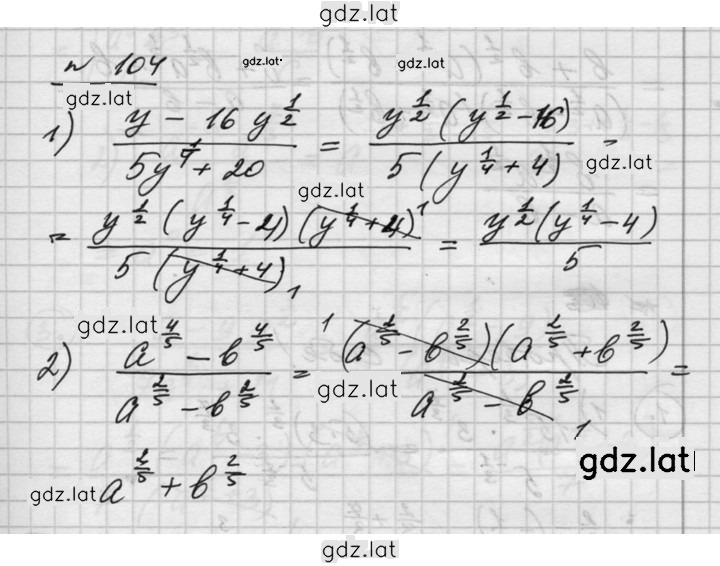 gdz.lat
№ 104 gdz.lat. gdz.lat
gdz.lat
1) (y - 16y^(1/2)) / (5y^(1/4) + 20) = (y^(1/2) (y^(1/2) - 16)) / (5(y^(1/4) + 4)) =
gdz.lat
gdz.lat
= (y^(1/2) (y^(1/4) - 4)(y^(1/4) + 4) 1) / (5(y^(1/4) + 4) 1) = (y^(1/2) (y^(1/4) - 4)) / 5
gdz.lat
2) (a^(4/5) - b^(4/5)) / (a^(2/5) - b^(2/5)) = (1 (a^(2/5) - b^(2/5))(a^(2/5) + b^(2/5))) / (a^(2/5) - b^(2/5) 1) =
gdz.lat
gdz.lat
gdz.lat a^(2/5) + b^(2/5)
gdz.lat